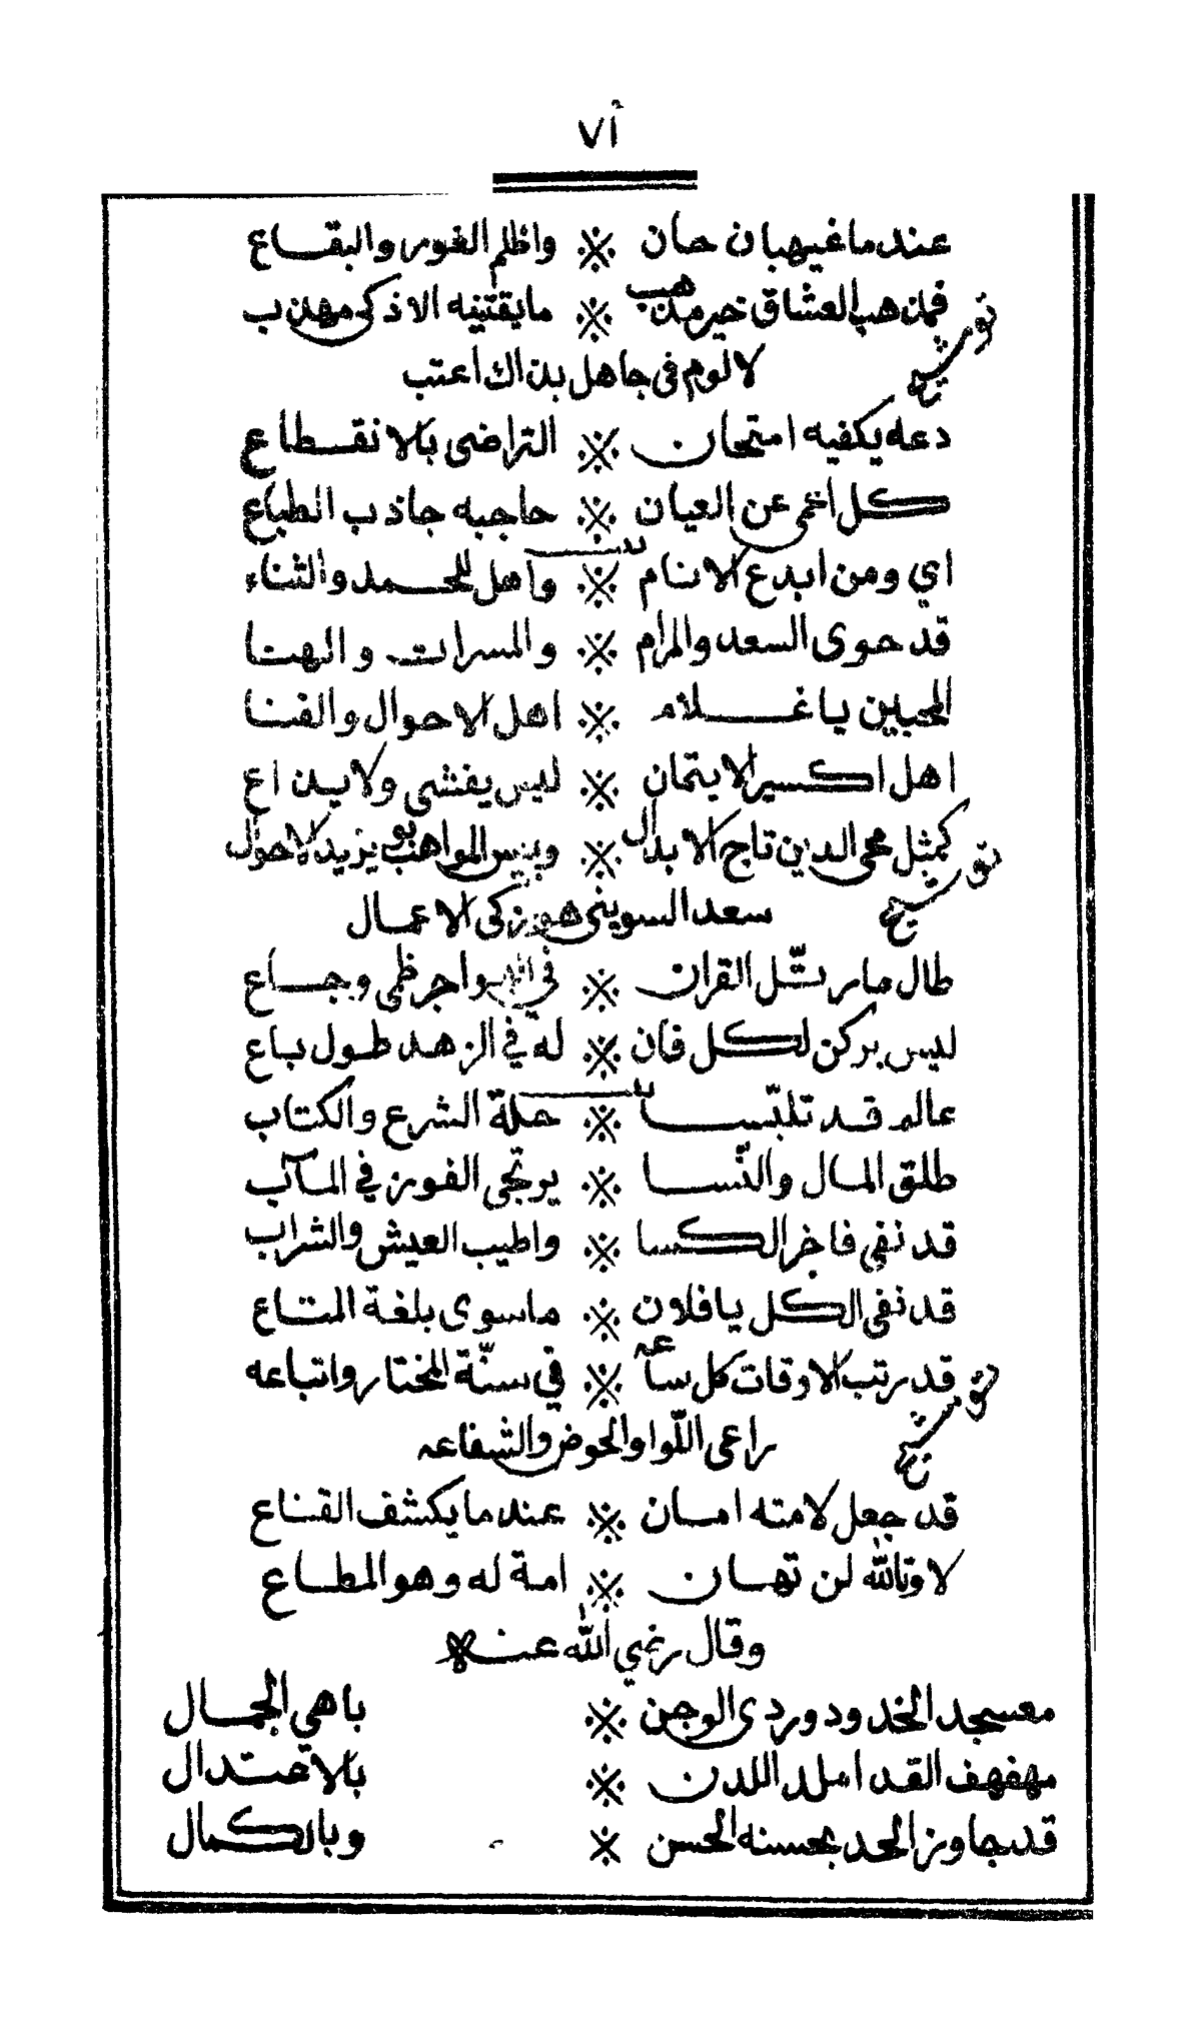 ٧١
عند ما غيهبان حان ※ واظلم الغور والبقاع
فمن هب العشاق خير مذهب ※ ما يقتنيه الا ذكى مهذب
توشيح
لا لوم فى جاهل بذاك اعتب
دعه يكفيه امتحان ※ التراضى بالانقطاع
كل اعمى عن العيان ※ حاجبه جاذب الطباع
اي ومن ابدع الانام ※ واهل للحمد والثناء
قد حوى السعد والمرام ※ والمسرات والهنا
المحبين يا غلام ※ اهل الاحوال والفنا
اهل اكسير الايتمان ※ ليس يفشى ولا يذاع
كمثل محى الدين تاج الابدال ※ وبيس المواهب بو يزيد الاحوال
توشيح
سعد السوينى هو زكى الاعمال
طال ما رتّل القران ※ في واجر ظمى وجاع
ليس يركن لكل فان ※ له في الزهد طول باع
عالم قد تلبّسا ※ حلة الشرع والكتاب
طلق المال والنّسا ※ يرتجى الفوز في المآب
قد نفى فاخر الكسا ※ واطيب العيش والشراب
قد نفى الكل يا فلان ※ ما سوى بلغة المتاع
قد رتب الاوقات كل ساعه ※ في سنّة المختار واتباعه
توشيح
راعى اللّوا والحوض والشفاعه
قد جعل لامته امان ※ عند ما يكشف القناع
لا وتالله لن تهان ※ امة له وهو المطاع
وقال رضي الله عنه
معسجد الخدود وردى الوجن ※ باهي الجمال
مهفهف القد املد اللدن ※ بالاعتدال
قد جاوز الحد بحسنه الحسن ※ وبالكمال